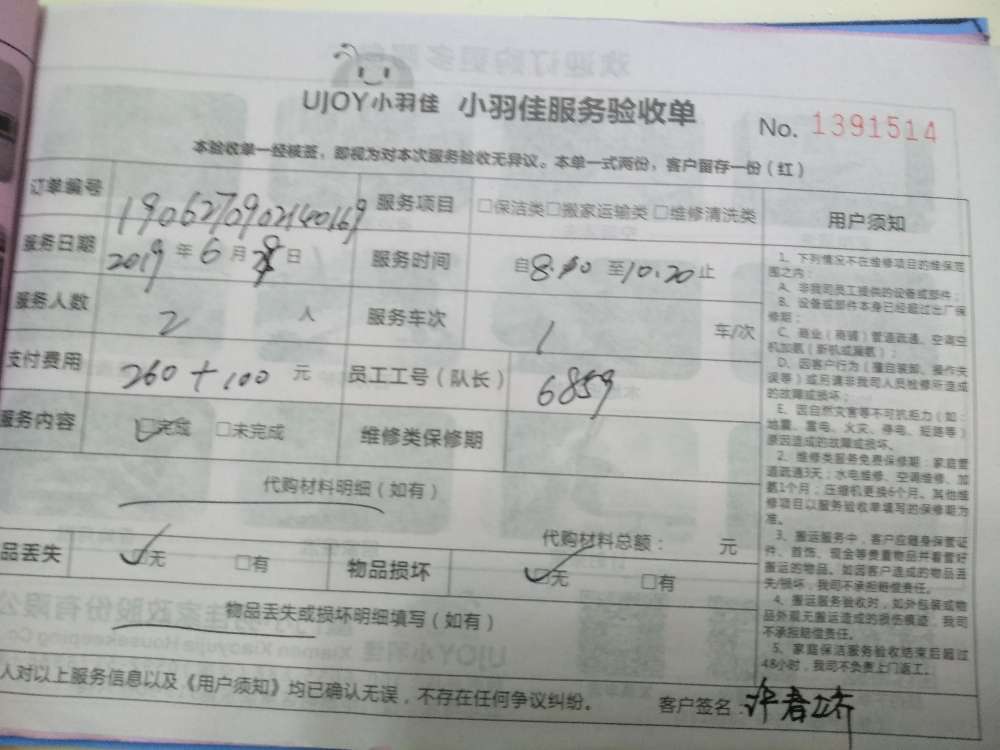 UJOY小羽佳 小羽佳服务验收单
No. 1391514
本验收单一经核签，即视为对本次服务验收无异议。本单一式两份，客户留存一份（红）
订单编号 1906270902140169 服务项目 □保洁类□搬家运输类□维修清洗类 用户须知
服务日期 2019年6月 日 服务时间 自8. 至10.20止
服务人数 2 人 服务车次 1 车/次
支付费用 260+100 元 员工工号（队长） 6859
服务内容 □完成 □未完成 维修类保修期
代购材料明细（如有）
代购材料总额： 元
品丢失 □无 □有 物品损坏 □无 □有
物品丢失或损坏明细填写（如有）
人对以上服务信息以及《用户须知》均已确认无误，不存在任何争议纠纷。 客户签名：
1、下列情况不在维修项目的维保范
围之内：
A、非我司员工提供的设备或部件；
B、设备或部件本身已经超过出厂保
修期；
C、商业（商铺）管道疏通、空调空
机加氨（新机或漏氨）；
D、因客户行为（擅自装卸、操作失
误等）或另请非我司人员检修所造成
的故障或损坏；
E、因自然灾害等不可抗拒力（如：
地震、雷电、火灾、停电、短路等）
原因造成的故障或损坏。
2、维修类服务免费保修期：家庭管
道疏通3天；水电维修、空调维修、加
氨1个月；压缩机更换6个月。其他维
修项目以服务验收单填写的保修期为
准。
3、搬运服务中，客户应随身保管证
件、首饰、现金等贵重物品并看管好
搬运的物品。如因客户造成的物品丢
失/损坏，我司不承担赔偿责任。
4、搬运服务验收时，如外包装或物
品外观无搬运造成的损伤痕迹，我司
不承担赔偿责任。
5、家庭保洁服务验收结束后超过
48小时，我司不负责上门返工。